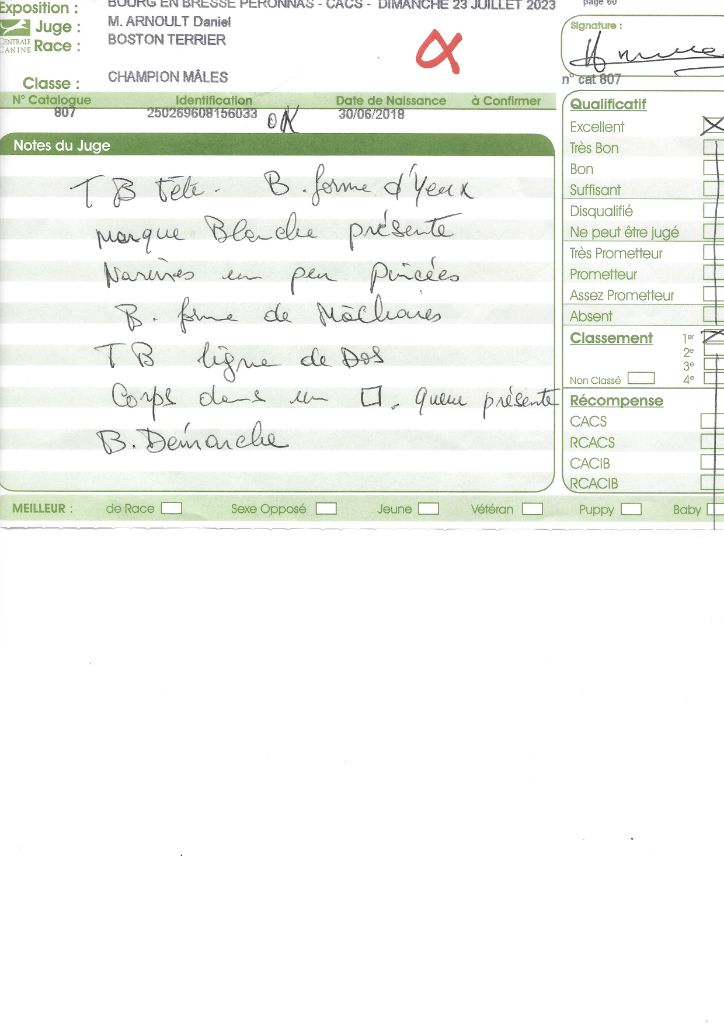 Exposition : BOURG EN BRESSE PERONNAS - CACS - DIMANCHE 23 JUILLET 2023
page 60
CENTRALE CANINE
Juge : M. ARNOULT Daniel
Race : BOSTON TERRIER
Signature :
Classe : CHAMPION MÂLES
n° cat 807
N° Catalogue Identification Date de Naissance à Confirmer
807 250269608156033 OK 30/06/2018
Notes du Juge
TB tête. B. forme d'Yeux
marque Blanche présente
Narines un peu Pincées
B. forme de Mâchoires
TB ligne de Dos
Corps dans un □. queue présente
B. Démarche
Qualificatif
Excellent
Très Bon
Bon
Suffisant
Disqualifié
Ne peut être jugé
Très Prometteur
Prometteur
Assez Prometteur
Absent
Classement 1er
2e
3e
Non Classé 4e
Récompense
CACS
RCACS
CACIB
RCACIB
MEILLEUR : de Race Sexe Opposé Jeune Vétéran Puppy Baby